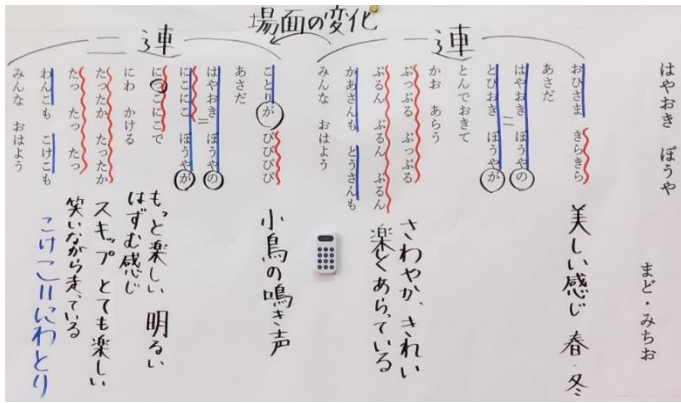 はやおき ぼうや
まど・みちお
場面の変化
一連
おひさま きらきら
あさだ
はやおき ぼうやの
=
とびおき ぼうやが
とんでおきて
かお あらう
ぷっぷる ぷっぷる
ぷるん ぷるん ぷるん
かあさんも とうさんも
みんな おはよう
美しい感じ 春・冬
さわやか、きれい
楽しくあらっている
二連
ことりが ぴぴぴぴ
あさだ
はやおき ぼうやの
=
にこにこ ぼうやが
にこにこで
にわ かける
たったか たったか
たっ たっ たっ
わんこも こけこも
みんな おはよう
小鳥の鳴き声
もっと楽しい 明るい
はずむ感じ
スキップ とても楽しい
笑いながら走っている
こけこ=にわとり